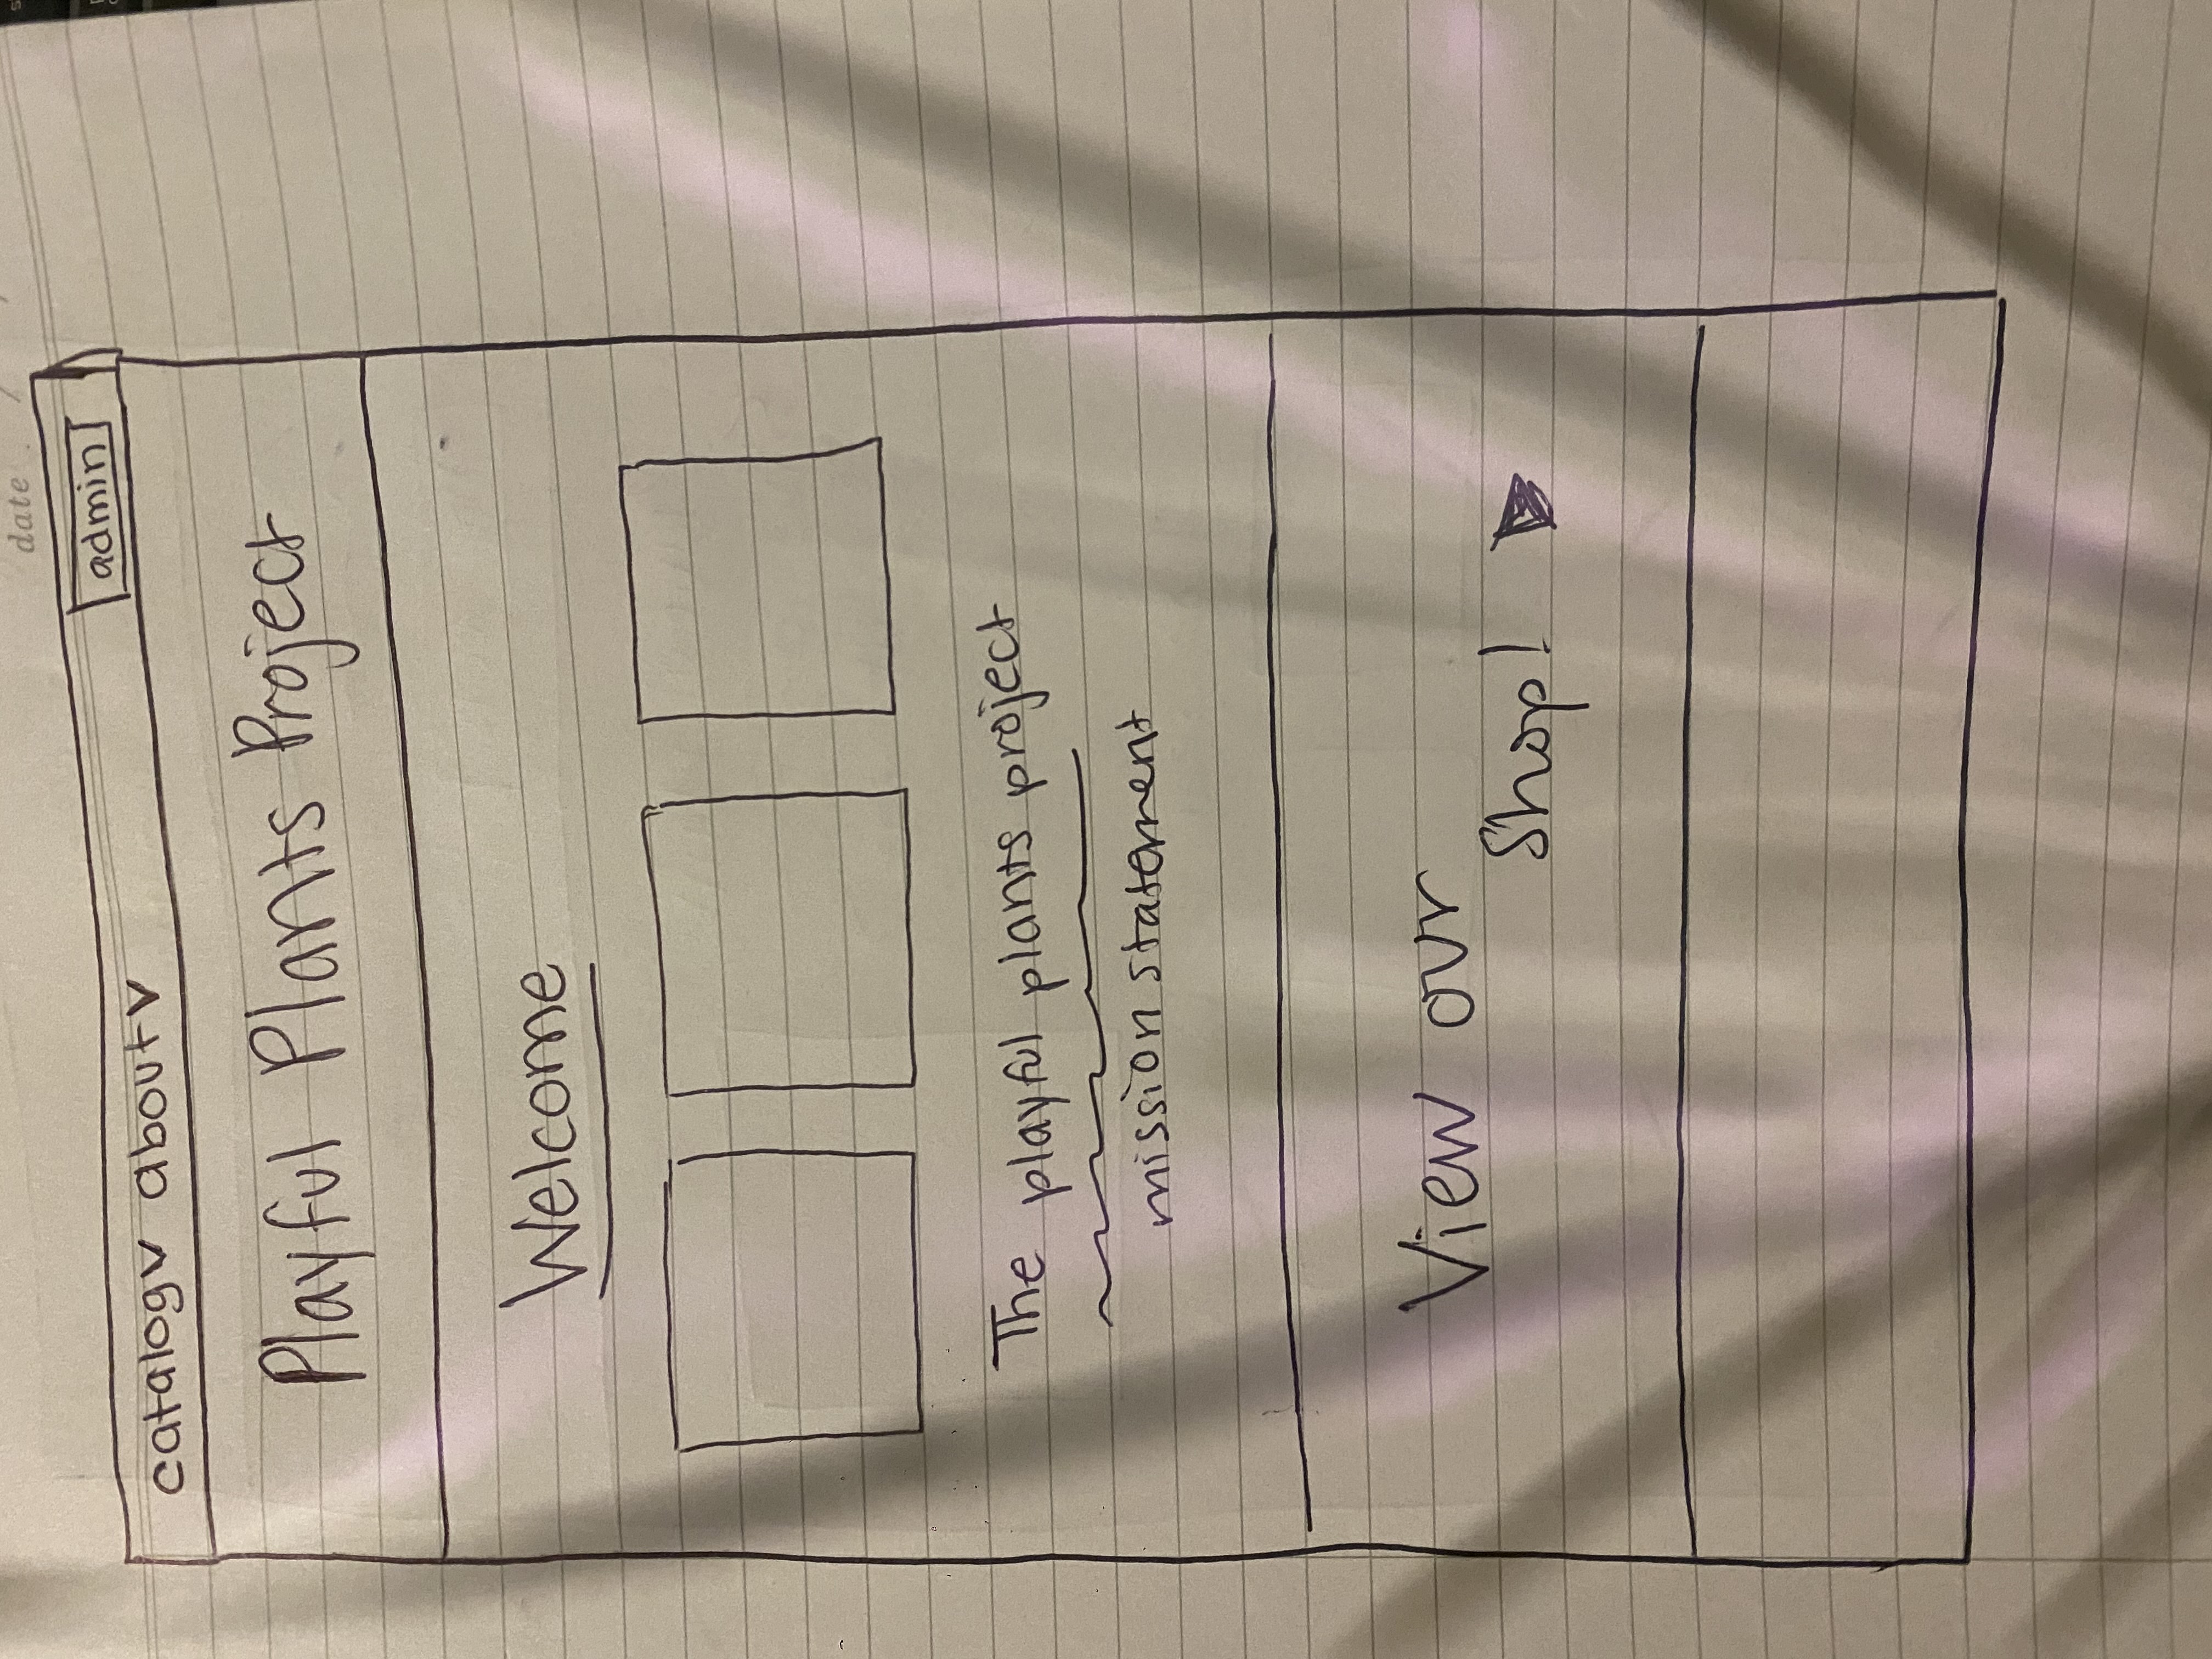 date
catalog about admin
Playful Plants Project
Welcome
The playful plants project
mission statement
View our
Shop!